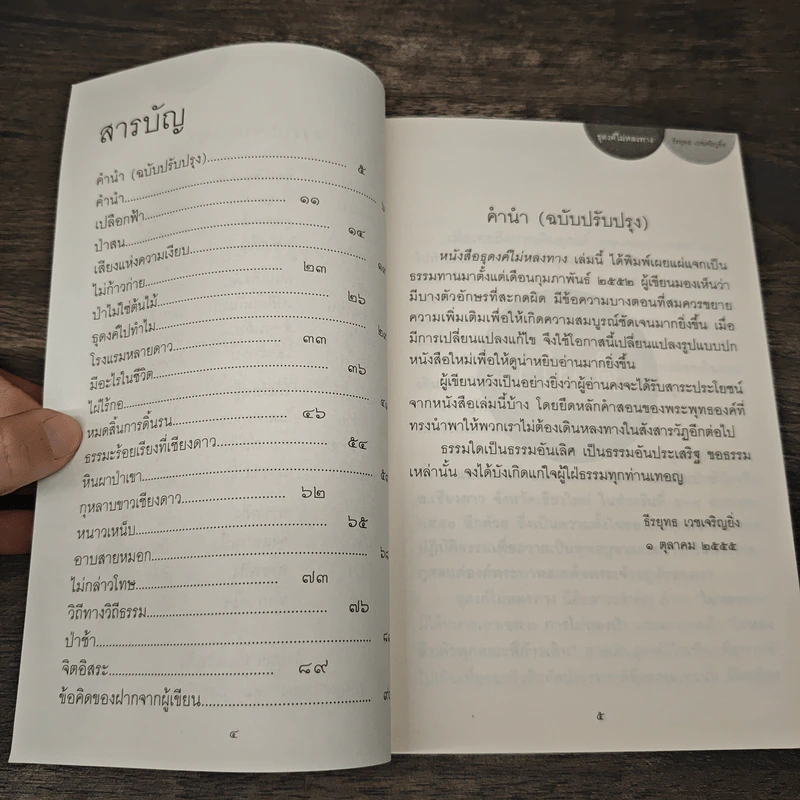 สารบัญ
คำนำ (ฉบับปรับปรุง) ๕
คำนำ
เปลือกฟ้า ๑๑
ป่าสน ๑๔
เสียงแห่งความเงียบ
ไม่ก้าวก่าย ๒๓
ป่าไม่ใช่ต้นไม้ ๒๖
ธุดงค์ไปทำไม
โรงแรมหลายดาว ๓๓
มีอะไรในชีวิต ๓๖
ไผ่ไร้กอ
หมดสิ้นการดิ้นรน ๔๖
ธรรมะร้อยเรียงที่เชียงดาว ๕๔
หินผาป่าเขา
กุหลาบขาวเชียงดาว ๖๒
หนาวเหน็บ ๖๕
อาบสายหมอก
ไม่กล่าวโทษ ๗๓
วิถีทางวิถีธรรม ๗๖
ป่าช้า
จิตอิสระ ๘๙
ข้อคิดของฝากจากผู้เขียน
๔
ธุดงค์ไม่หลงทาง
ธีรยุทธ เวชเจริญยิ่ง
คำนำ (ฉบับปรับปรุง)
หนังสือธุดงค์ไม่หลงทาง เล่มนี้ ได้พิมพ์เผยแผ่แจกเป็น
ธรรมทานมาตั้งแต่เดือนกุมภาพันธ์ ๒๕๕๒ ผู้เขียนมองเห็นว่า
มีบางตัวอักษรที่สะกดผิด มีข้อความบางตอนที่สมควรขยาย
ความเพิ่มเติมเพื่อให้เกิดความสมบูรณ์ชัดเจนมากยิ่งขึ้น เมื่อ
มีการเปลี่ยนแปลงแก้ไข จึงใช้โอกาสนี้เปลี่ยนแปลงรูปแบบปก
หนังสือใหม่เพื่อให้ดูน่าหยิบอ่านมากยิ่งขึ้น
ผู้เขียนหวังเป็นอย่างยิ่งว่าผู้อ่านคงจะได้รับสาระประโยชน์
จากหนังสือเล่มนี้บ้าง โดยยึดหลักคำสอนของพระพุทธองค์ที่
ทรงนำพาให้พวกเราไม่ต้องเดินหลงทางในสังสารวัฏอีกต่อไป
ธรรมใดเป็นธรรมอันเลิศ เป็นธรรมอันประเสริฐ ขอธรรม
เหล่านั้น จงได้บังเกิดแก่ใจผู้ใฝ่ธรรมทุกท่านเทอญ
ธีรยุทธ เวชเจริญยิ่ง
๑ ตุลาคม ๒๕๕๕
๕